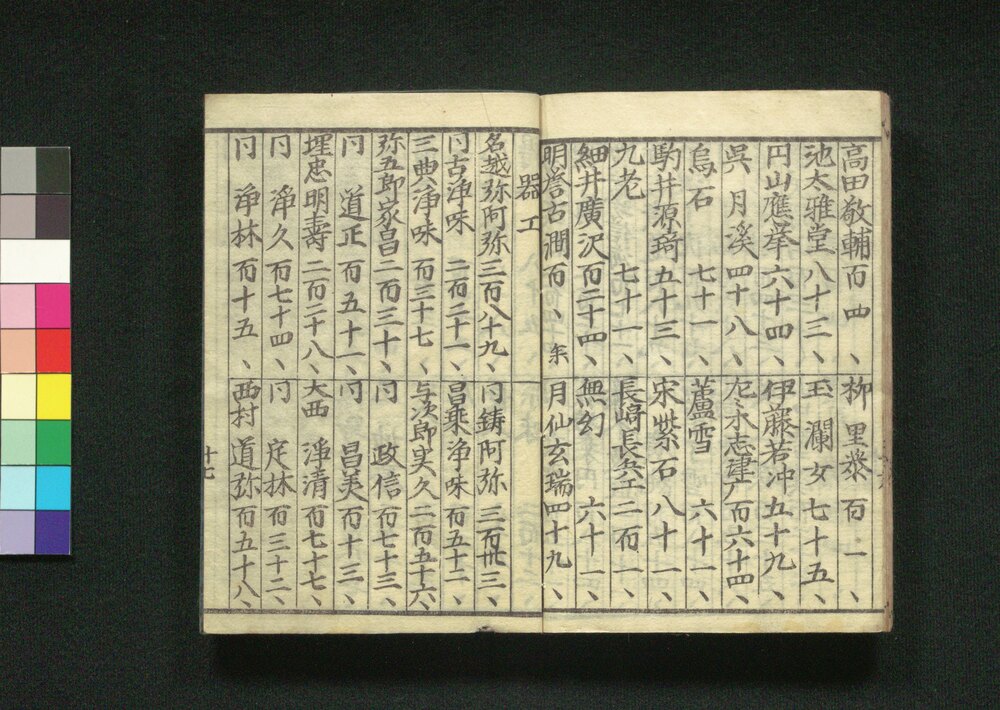 高田敬輔百四、
柳里恭百一、
池大雅堂八十三、
玉瀾女七十五、
円山應挙六十四、
伊藤若冲五十九、
呉月溪四十八、
烏石七十一、
蘆雪六十一、
駒井源琦五十三、
宋紫石八十一、
九老七十一、
長﨑長兵エ二百一、
細井廣沢百二十四、
無幻六十一、
明誉古澗百、年
月仙玄瑞四十九、
器工
名越弥阿弥三百八十九、
冂鋳阿弥三百卅三、
冂古浄味二百二十一、
昌乗浄味百五十二、
三典浄味百三十七、
与次郎実久二百五十六、
弥五郎家昌二百三十、
冂政信百七十三、
冂道正百五十一、
冂昌美百十三、
埋忠明壽二百二十八、
大西浄清百七十七、
冂浄久百七十四、
冂定林百三十二、
冂浄林百十五、
西村道弥百五十八、
十七